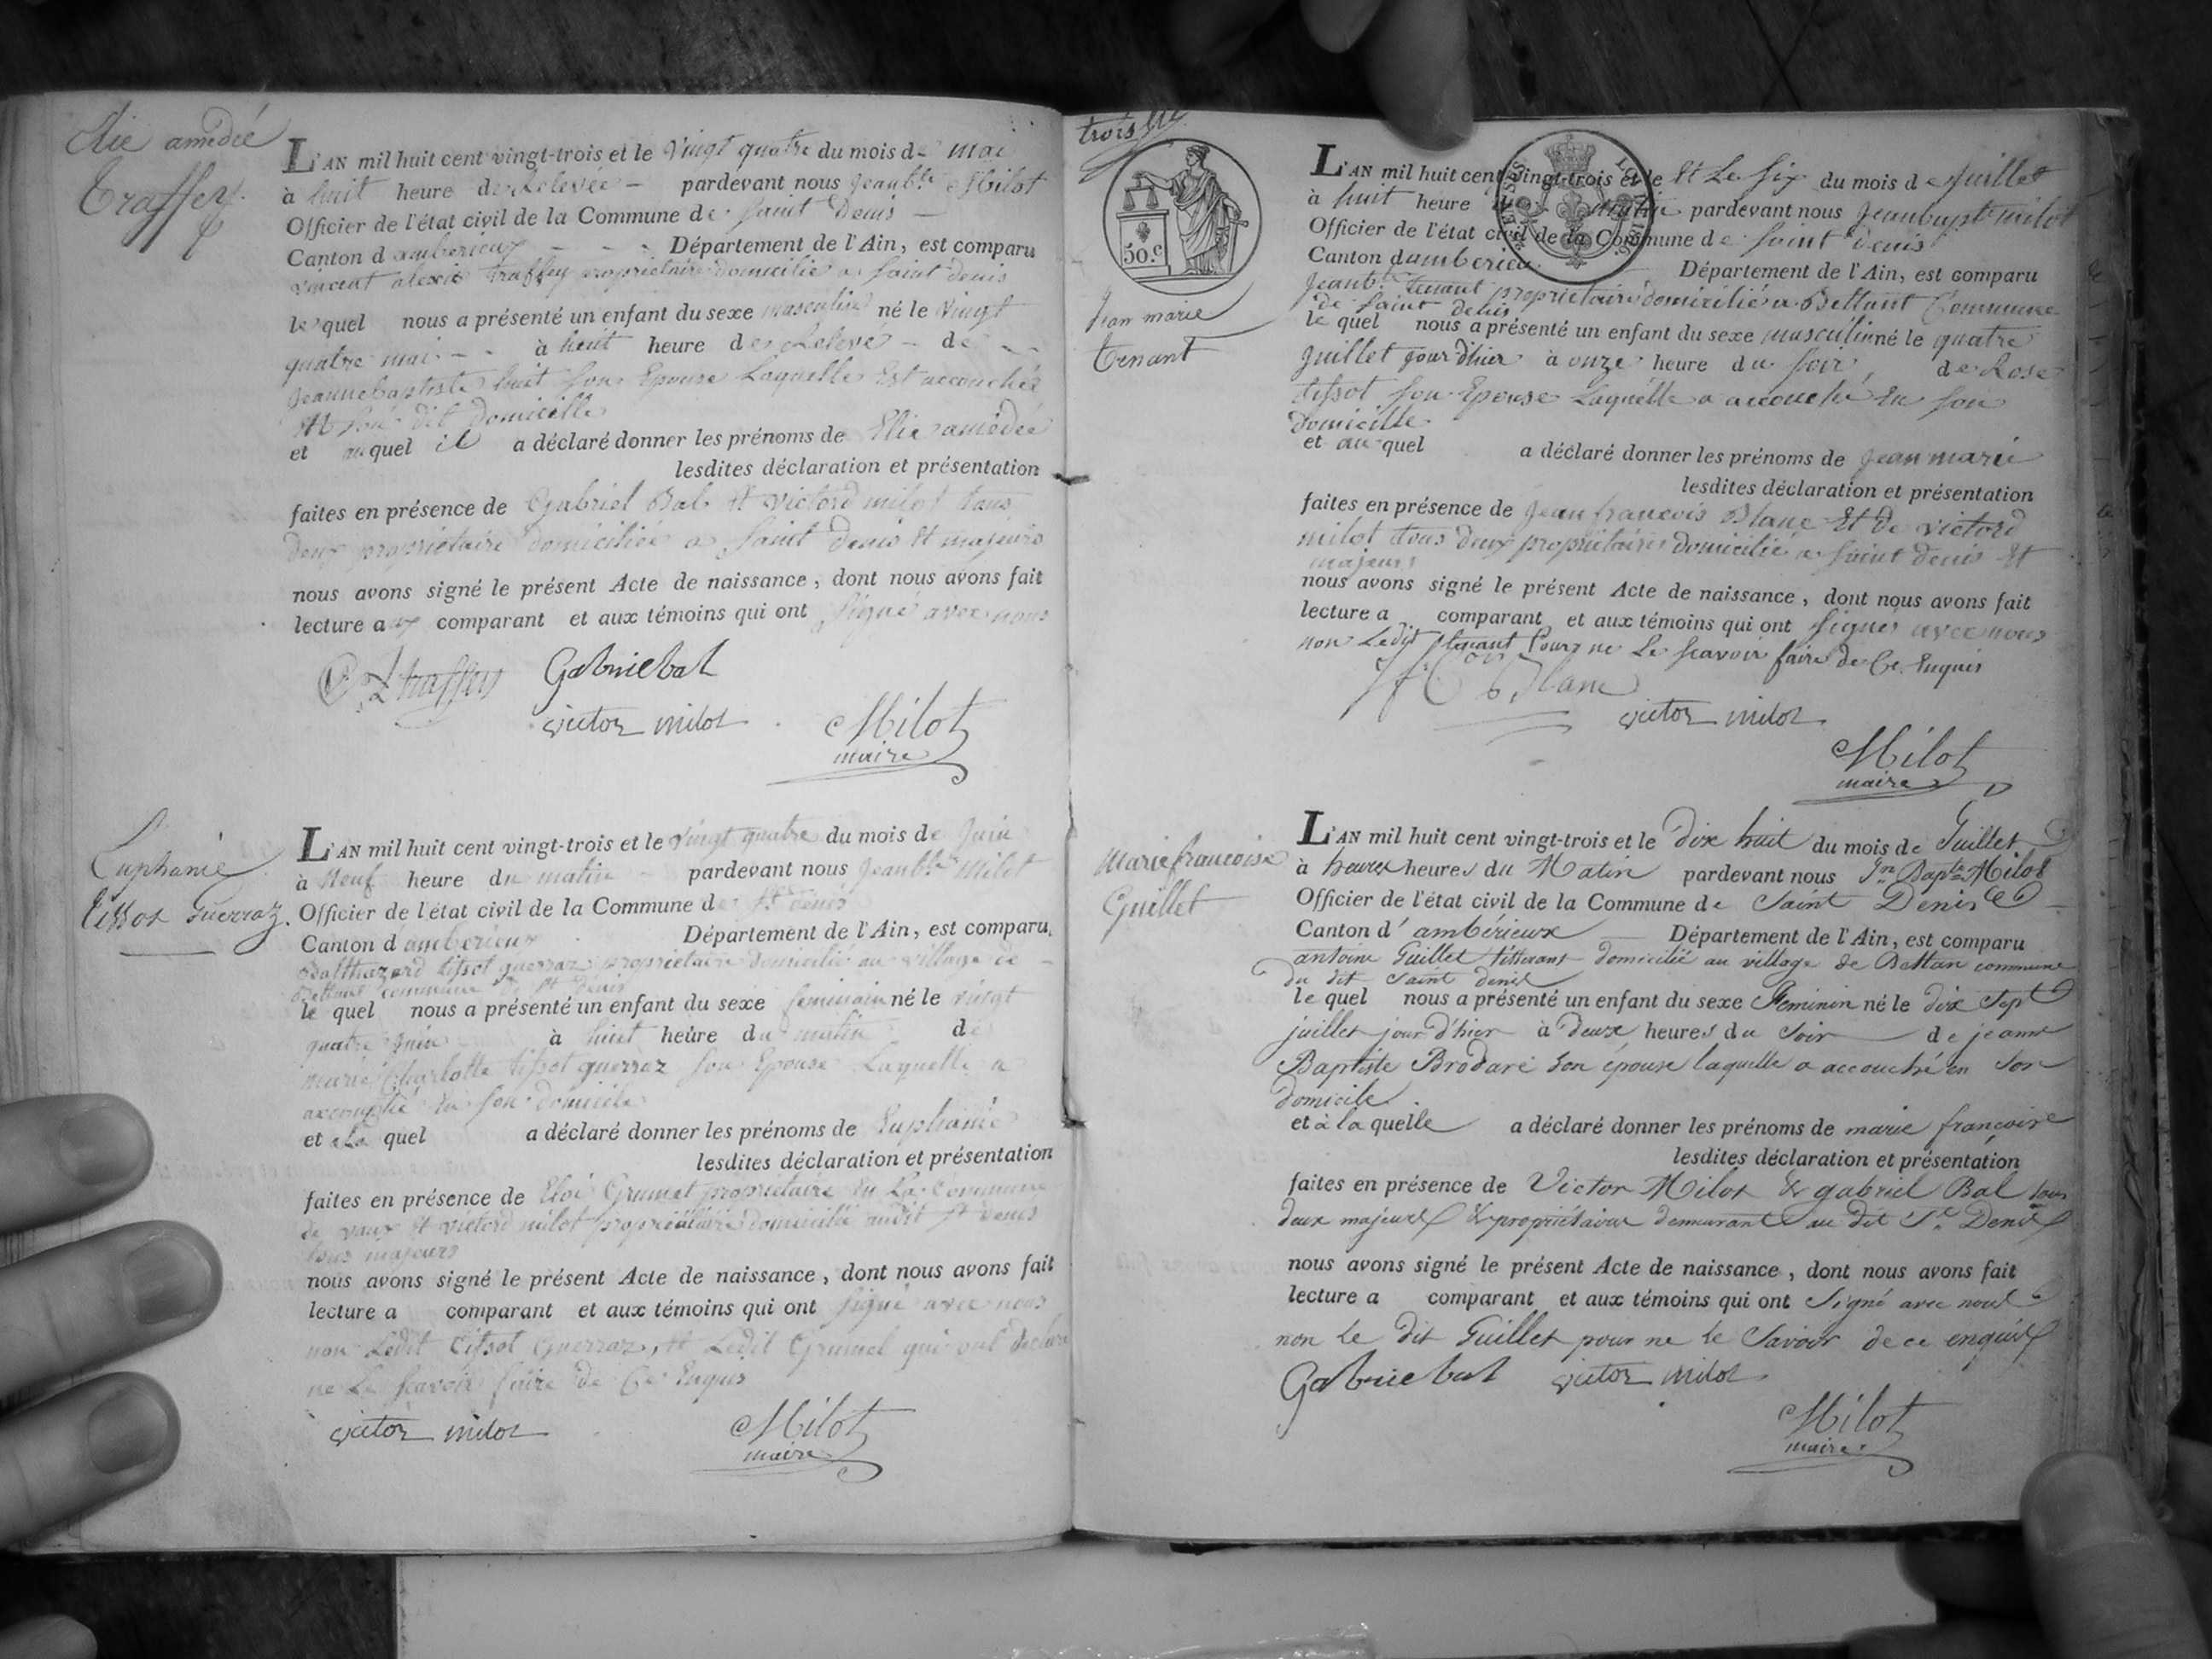 Elie amédée
Traffey
L'AN mil huit cent vingt-trois et le vingt quatre du mois de mai
à huit heure de Relevée - pardevant nous jeanbte Milot
Officier de l'état civil de la Commune de saint Denis
Canton d amberieux - - - Département de l'Ain, est comparu
vincent alexis traffey propriétaire domicilié a saint denis
le quel nous a présenté un enfant du sexe masculin né le vingt
quatre mai - - à huit heure de Relevé - de
jeannebaptiste huit son Epouse Laquelle Est accouchée
domicille
et auquel il a déclaré donner les prénoms de Elie amédée
lesdites déclaration et présentation
faites en présence de Gabriel Bal et victord milot tous
deux propriétaire domiciliée a saint Denis et majeurs
nous avons signé le présent Acte de naissance, dont nous avons fait
lecture aux comparant et aux témoins qui ont signé avec nous
traffey Gabriebal
victor milot Milot
maire
Euphanie
tissot Guerraz.
L'AN mil huit cent vingt-trois et le vingt quatre du mois de juin
à Neuf heure du matin pardevant nous jeanbte Milot
Officier de l'état civil de la Commune de St denis
Canton d amberieux Département de l'Ain, est comparu,
Balthazard tissot guerraz propriétaire domicilié au village de
Bettant commune de St denis
le quel nous a présenté un enfant du sexe feminain né le vingt
quatre juin à huit heure du matin de
marie Charlotte tissot guerraz son Epouse Laquelle a
accouchée en son domicile
et a La quel a déclaré donner les prénoms de Euphanie
lesdites déclaration et présentation
faites en présence de Eloi Grumet propriétaire en La Commune
de vaux et victord milot propriétaire domicilié audit St denis
tous majeurs
nous avons signé le présent Acte de naissance, dont nous avons fait
lecture a comparant et aux témoins qui ont signé avec nous
non Ledit tissot Guerraz, et Ledit Grumel qui ont declaré
ne Le scavoir faire de Ce Enquis
victor milot Milot
maire
trois
50.c
Jean marie
tenant
L'AN mil huit cent vingt-trois et le Et Le six du mois de juillet
à huit heure du matin pardevant nous jeanbapte milot
Officier de l'état civil de la Commune de saint denis
Canton d amberieu. Département de l'Ain, est comparu
jeanbte tenant propriétaire domicilié a Bettant Commune
de saint denis
le quel nous a présenté un enfant du sexe masculin né le quatre
juillet jour d'hier à onze heure du soir, de Rose
tissot son Epouse Laquelle a accouché En son
domicille
et au quel a déclaré donner les prénoms de jean marie
lesdites déclaration et présentation
faites en présence de jean francois Blanc Et de victord
milot tous deux propriétaires domicilié a saint denis Et
majeurs
nous avons signé le présent Acte de naissance, dont nous avons fait
lecture a comparant et aux témoins qui ont signés avec nous
non Ledit tenant Pour ne Le scavoir faire de Ce Enquis
Blanc
victor milot
Milot
maire
Marie francoise
Guillet
L'AN mil huit cent vingt-trois et le dix huit du mois de Juillet
à heures heures du Matin pardevant nous Jn Bapte Milot
Officier de l'état civil de la Commune de Saint Denis
Canton d' ambérieux Département de l'Ain, est comparu
antoine Guillet tisserant domicilié au village de Bettan commune
du dit saint denis
le quel nous a présenté un enfant du sexe Feminin né le dix sept
juillet jour d'hier à deux heures du soir de jeanne
Baptiste Brodare son épouse laquelle a accouché en son
domicile
et à la quelle a déclaré donner les prénoms de marie françoise
lesdites déclaration et présentation
faites en présence de Victor Milot & gabriel Bal tous
deux majeurs & propriétaires demeurant au dit St Denis
nous avons signé le présent Acte de naissance, dont nous avons fait
lecture a comparant et aux témoins qui ont signé avec nous
non le dit Guillet pour ne le savoir de ce enquis
Gabriebal victor milot
Milot
maire